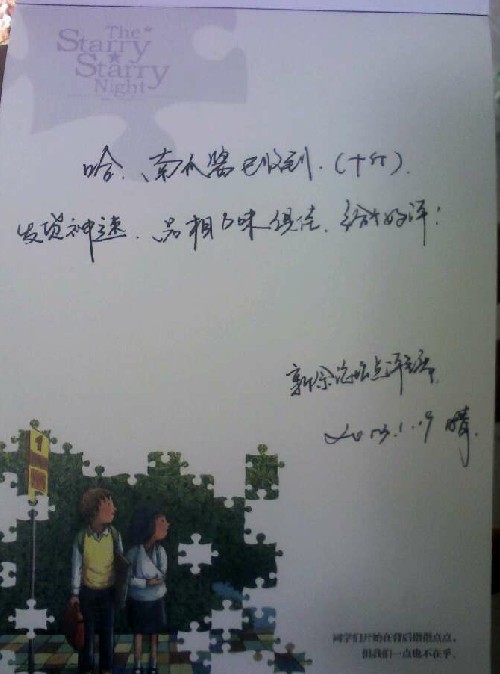 The
Starry
Starry
Night
哈、南瓜酱已收到.(十斤).
发货神速、品相口味俱佳、给个好评!
新余论坛点评
晴
同学们开始在背后指指点点,
但我们一点也不在乎。